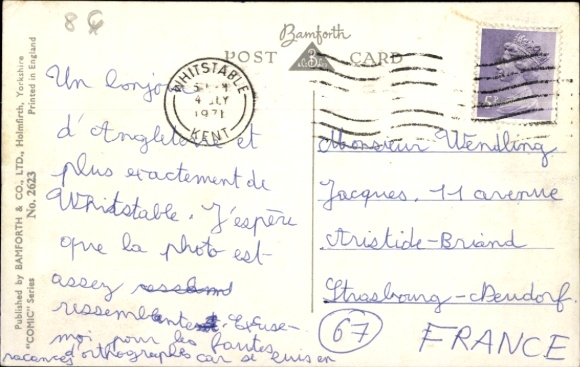 8
Bamforth
POST CARD
Published by BAMFORTH & CO., LTD., Holmfirth, Yorkshire
Printed in England
"COMIC" Series No. 2623
WHITSTABLE
4 JLY
1971
KENT
Un bonjour
d'Angleterre et
plus exactement de
Whitstable. J'espère
que la photo est
assez
ressemblante. Excuse-
moi pour les fautes
d'orthographes car je suis en
vacances
Monsieur Wendling
Jacques, 11 avenue
Aristide-Briand
Strasbourg-Neudorf.
67
FRANCE